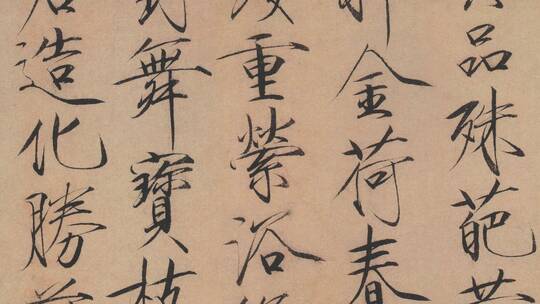 品殊葩
金荷春
重縈浴
對舞寶枝
造化勝